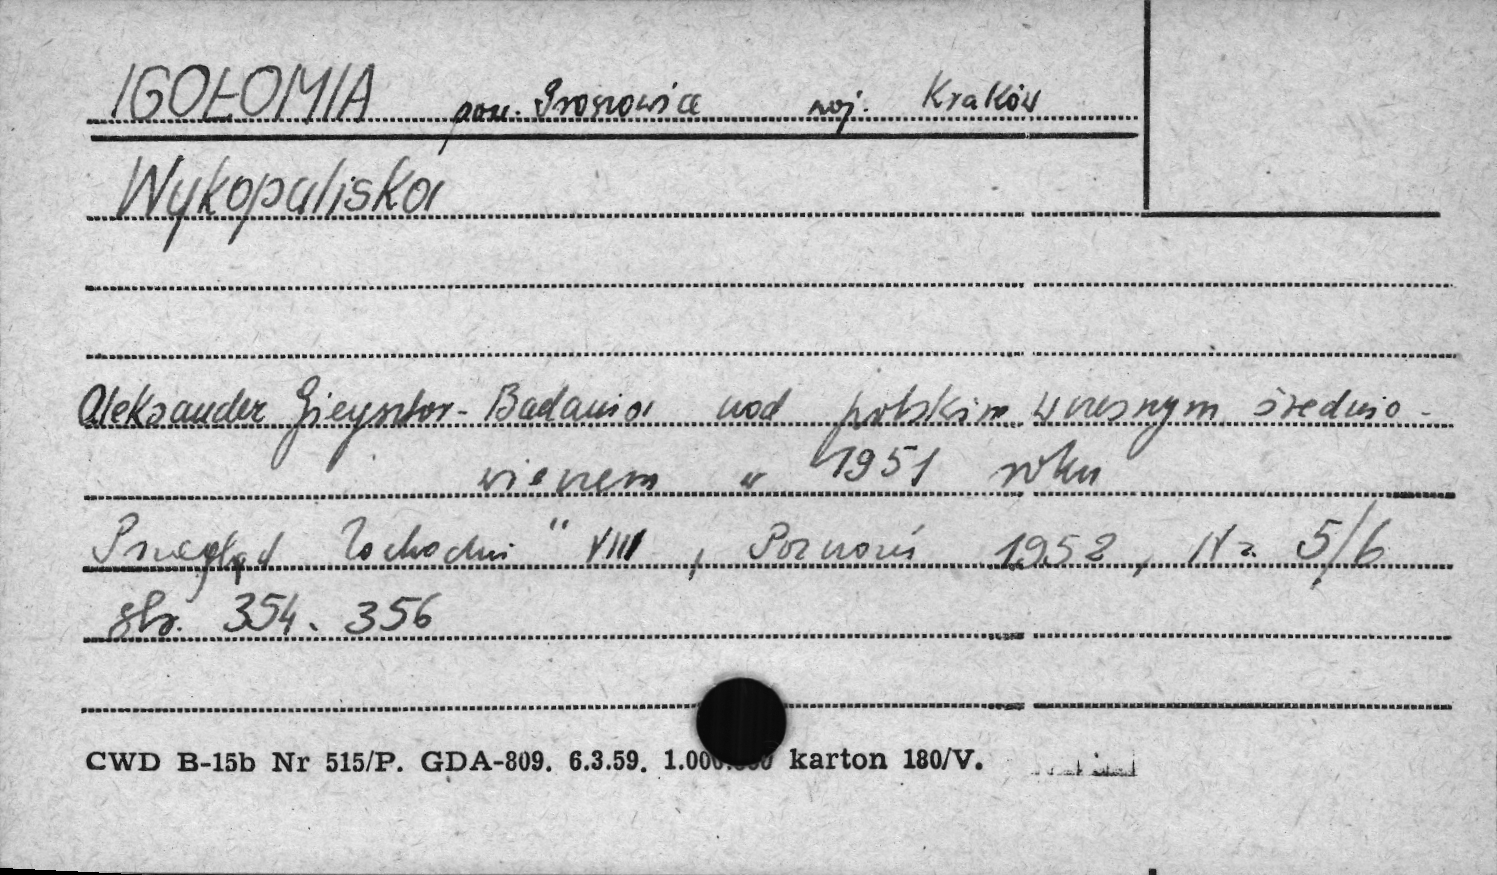 IGOŁOMIA pow. Proszowice woj. Kraków
Wykopaliska
Aleksander Gieysztor - Badania nad polskim wczesnym średnio-
wieczem w 1951 roku
Przegląd Zachodni" VIII, Poznań 1952, Nr 5/6
str. 354-356
CWD B-15b Nr 515/P. GDA-809. 6.3.59. 1.000.000 karton 180/V.